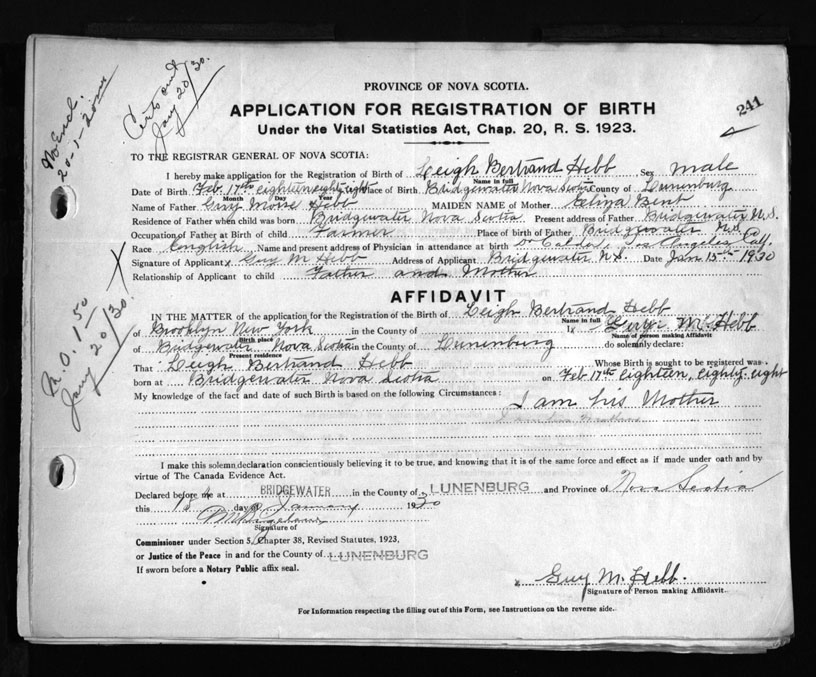 PROVINCE OF NOVA SCOTIA.
241
APPLICATION FOR REGISTRATION OF BIRTH
Under the Vital Statistics Act, Chap. 20, R. S. 1923.
No Encl.
20-1-30
Certs and
Jany 20/30.
TO THE REGISTRAR GENERAL OF NOVA SCOTIA:
I hereby make application for the Registration of Birth of Leigh Bertrand Hebb Sex male
Name in full
Date of Birth Feb 17th eighteen eighty eight Place of Birth Bridgewater Nova Scotia County of Lunenburg
Month Day Year
Name of Father Guy Hebb MAIDEN NAME of Mother Bent
Residence of Father when child was born Bridgewater Nova Scotia Present address of Father Bridgewater N.S.
Occupation of Father at Birth of child Farmer Place of birth of Father Bridgewater N.S.
Race English Name and present address of Physician in attendance at birth Dr Los Angeles Cal.
Signature of Applicant x Guy M Hebb Address of Applicant Bridgewater N.S. Date Jan 15th 1930
Relationship of Applicant to child Father and Mother
M.O. 1 50
Jany 20/30.
AFFIDAVIT
IN THE MATTER of the application for the Registration of the Birth of Leigh Bertrand Hebb
Name in full
of Brooklyn New York in the County of I, Hebb
Birth place Name of person making Affidavit
of Bridgewater Nova Scotia in the County of Lunenburg do solemnly declare:
Present residence
That Leigh Bertrand Hebb Whose Birth is sought to be registered was
born at Bridgewater Nova Scotia on Feb 17th eighteen, eighty eight
My knowledge of the fact and date of such Birth is based on the following Circumstances: I am his Mother
I make this solemn declaration conscientiously believing it to be true, and knowing that it is of the same force and effect as if made under oath and by
virtue of The Canada Evidence Act.
Declared before me at BRIDGEWATER in the County of LUNENBURG and Province of Nova Scotia
this 15 day of January 1930
Signature of
Commissioner under Section 5, Chapter 38, Revised Statutes, 1923,
or Justice of the Peace in and for the County of LUNENBURG
If sworn before a Notary Public affix seal.
x Guy M. Hebb.
Signature of Person making Affidavit.
For Information respecting the filling out of this Form, see Instructions on the reverse side.